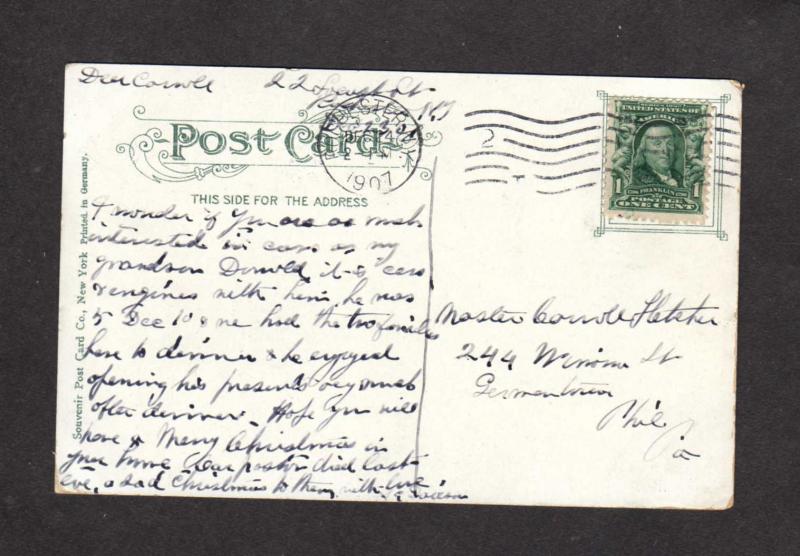 Dear Carroll 22
Post Card
THIS SIDE FOR THE ADDRESS
1907
2
UNITED STATES OF
AMERICA
1 FRANKLIN 1
POSTAGE
ONE CENT
Souvenir Post Card Co., New York Printed in Germany.
I wonder if you are as much
interested in cars as my
grandson Donold, it is cars
& engines with him, he was
5 Dec 10 & we had the two families
here to dinner & he enjoyed
opening his presents very much
after dinner. Hope you will
have a Merry Christmas in
your home, our pastor died last
eve, a sad Christmas to them, with love
Master Carroll Fletcher
244 Winona St
Germantown
Phil
Pa